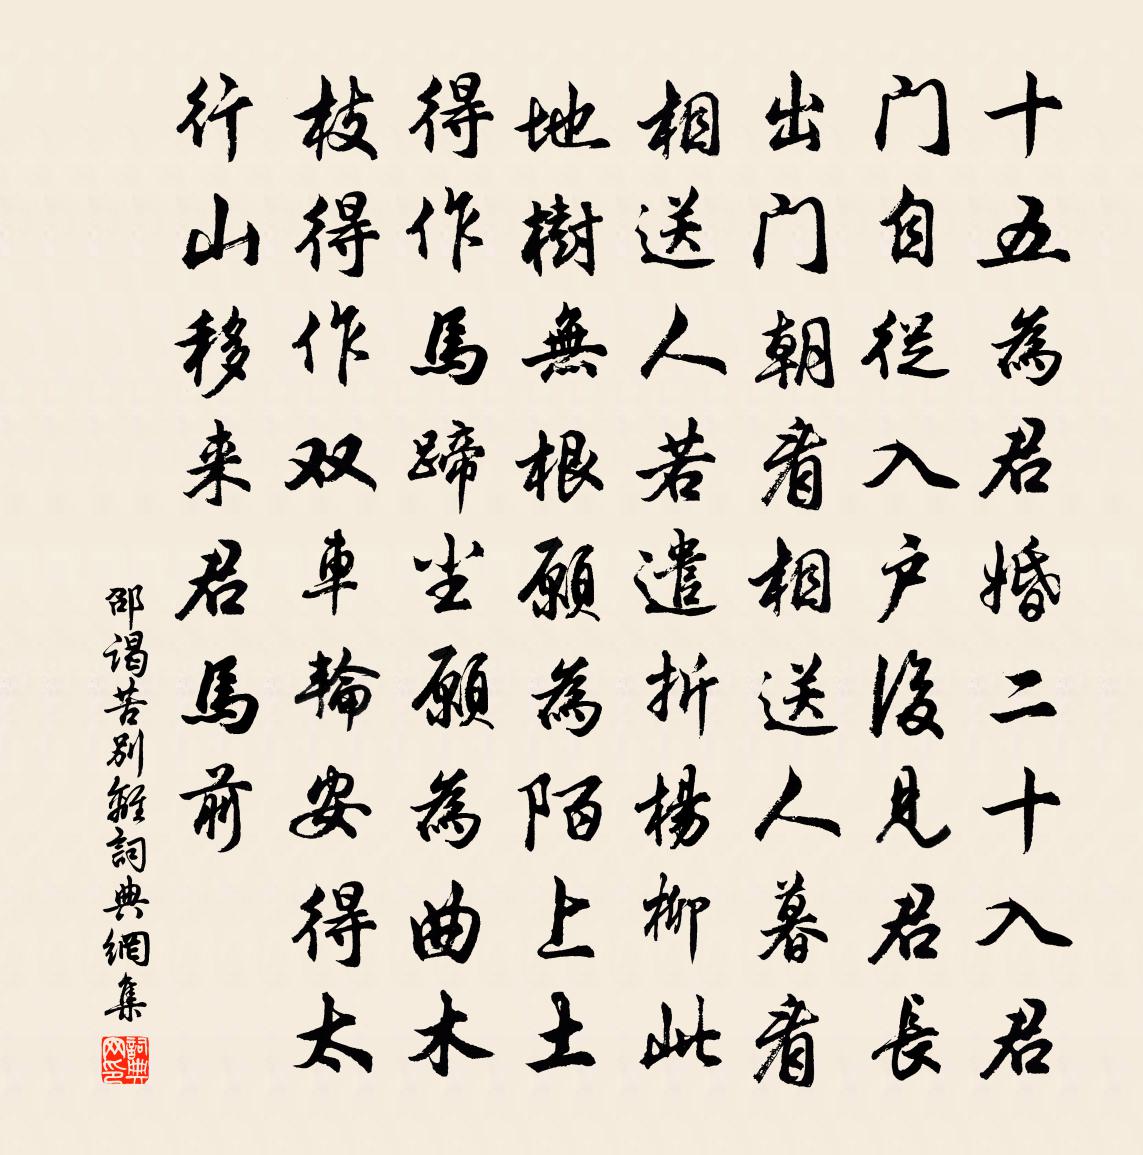 十五為君婚二十入君
门自從入户後見君長
出门朝看相送人暮看
相送人若遣折楊柳此
地樹無根願為陌上土
得作馬蹄尘願為曲木
枝得作双車輪安得太
行山移来君馬前
邵谒苦别離詞典網集
詞典网印